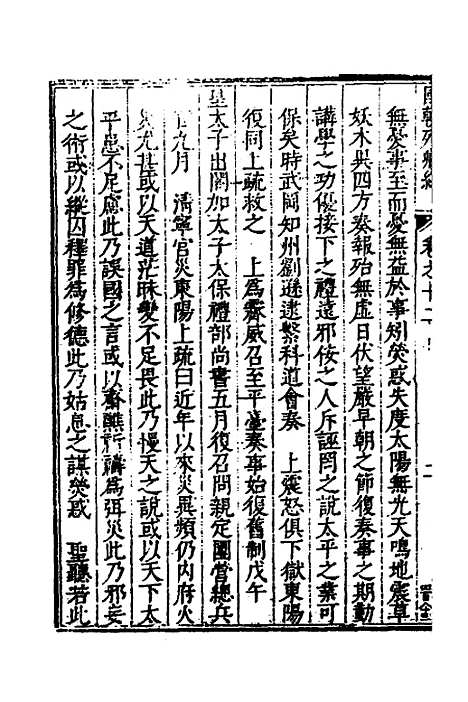 國朝列卿紀 卷之十二 二
無憂事至而憂無益於事矧熒惑失度太陽無光天鳴地震草
妖木異四方奏報殆無虛日伏望嚴早朝之節復奏事之期勤
講學之功優接下之禮遠邪佞之人斥誣罔之說太平之業可
保矣時武岡知州劉遜逮繫科道會奏 上震怒俱下獄東陽
復同上疏救之 上為霽威召至平臺奏事始復舊制戊午
皇太子出閣加太子太保禮部尚書五月復召問親定團營總兵
官九月 清寧宮災東陽上疏曰近年以來災異頻仍內府火
災尤甚或以天道茫昧變不足畏此乃慢天之說或以天下太
平患不足慮此乃誤國之言或以齋醮祈禱為弭災此乃邪妄
之術或以縱囚釋罪為修德此乃姑息之謀熒惑 聖聽若此